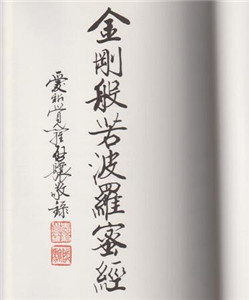 金剛般若波羅蜜經
愛新覺羅啟驤敬錄